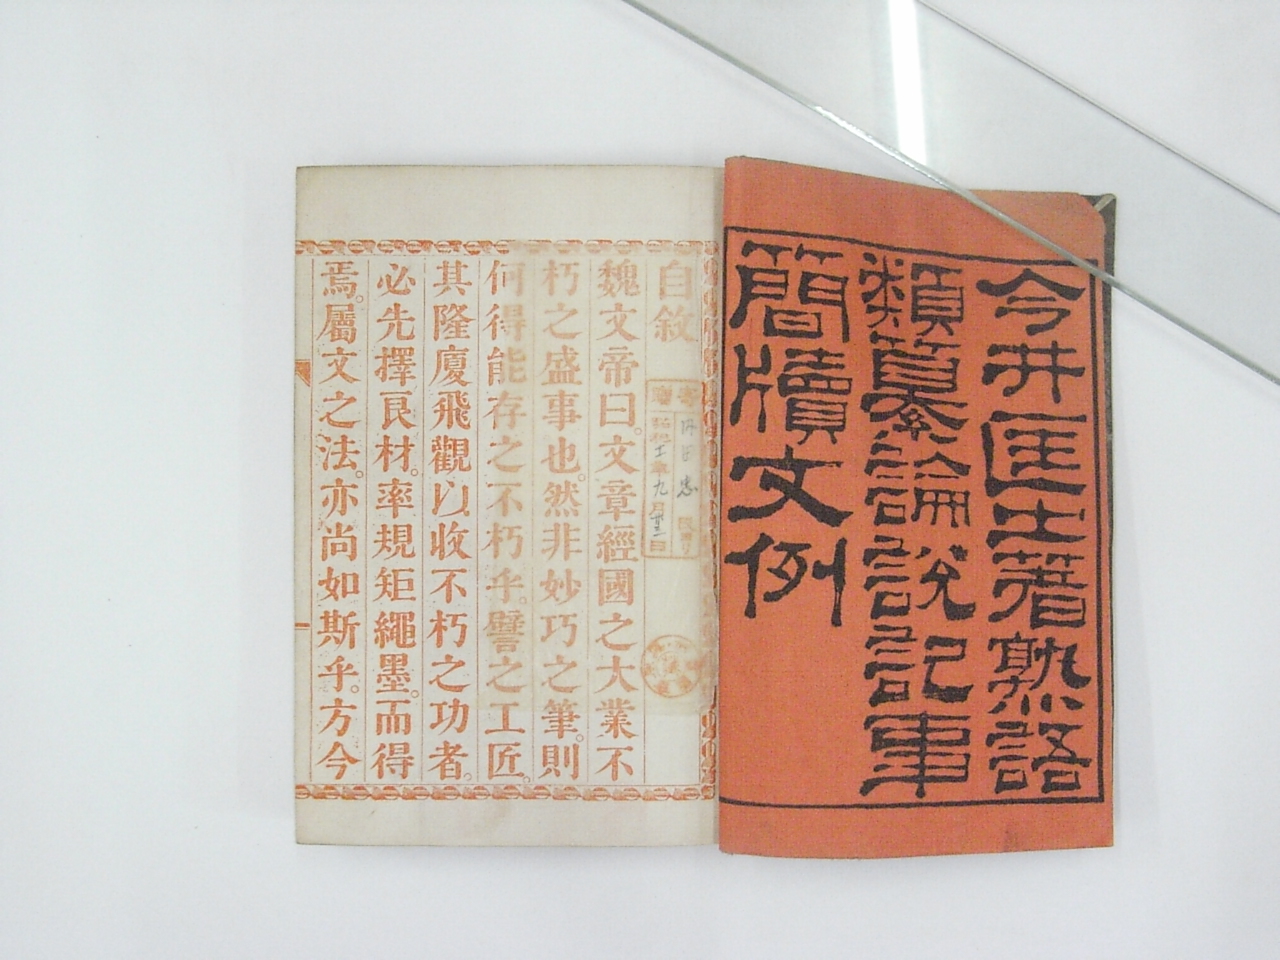 今井匡士著熟語
類纂論說記事
簡牘文例
自敘
魏文帝曰。文章經國之大業不
朽之盛事也。然非妙巧之筆。則
何得能存之不朽乎。譬之工匠。
其隆廈飛觀以收不朽之功者。
必先擇良材。率規矩繩墨。而得
焉。屬文之法。亦尚如斯乎。方今